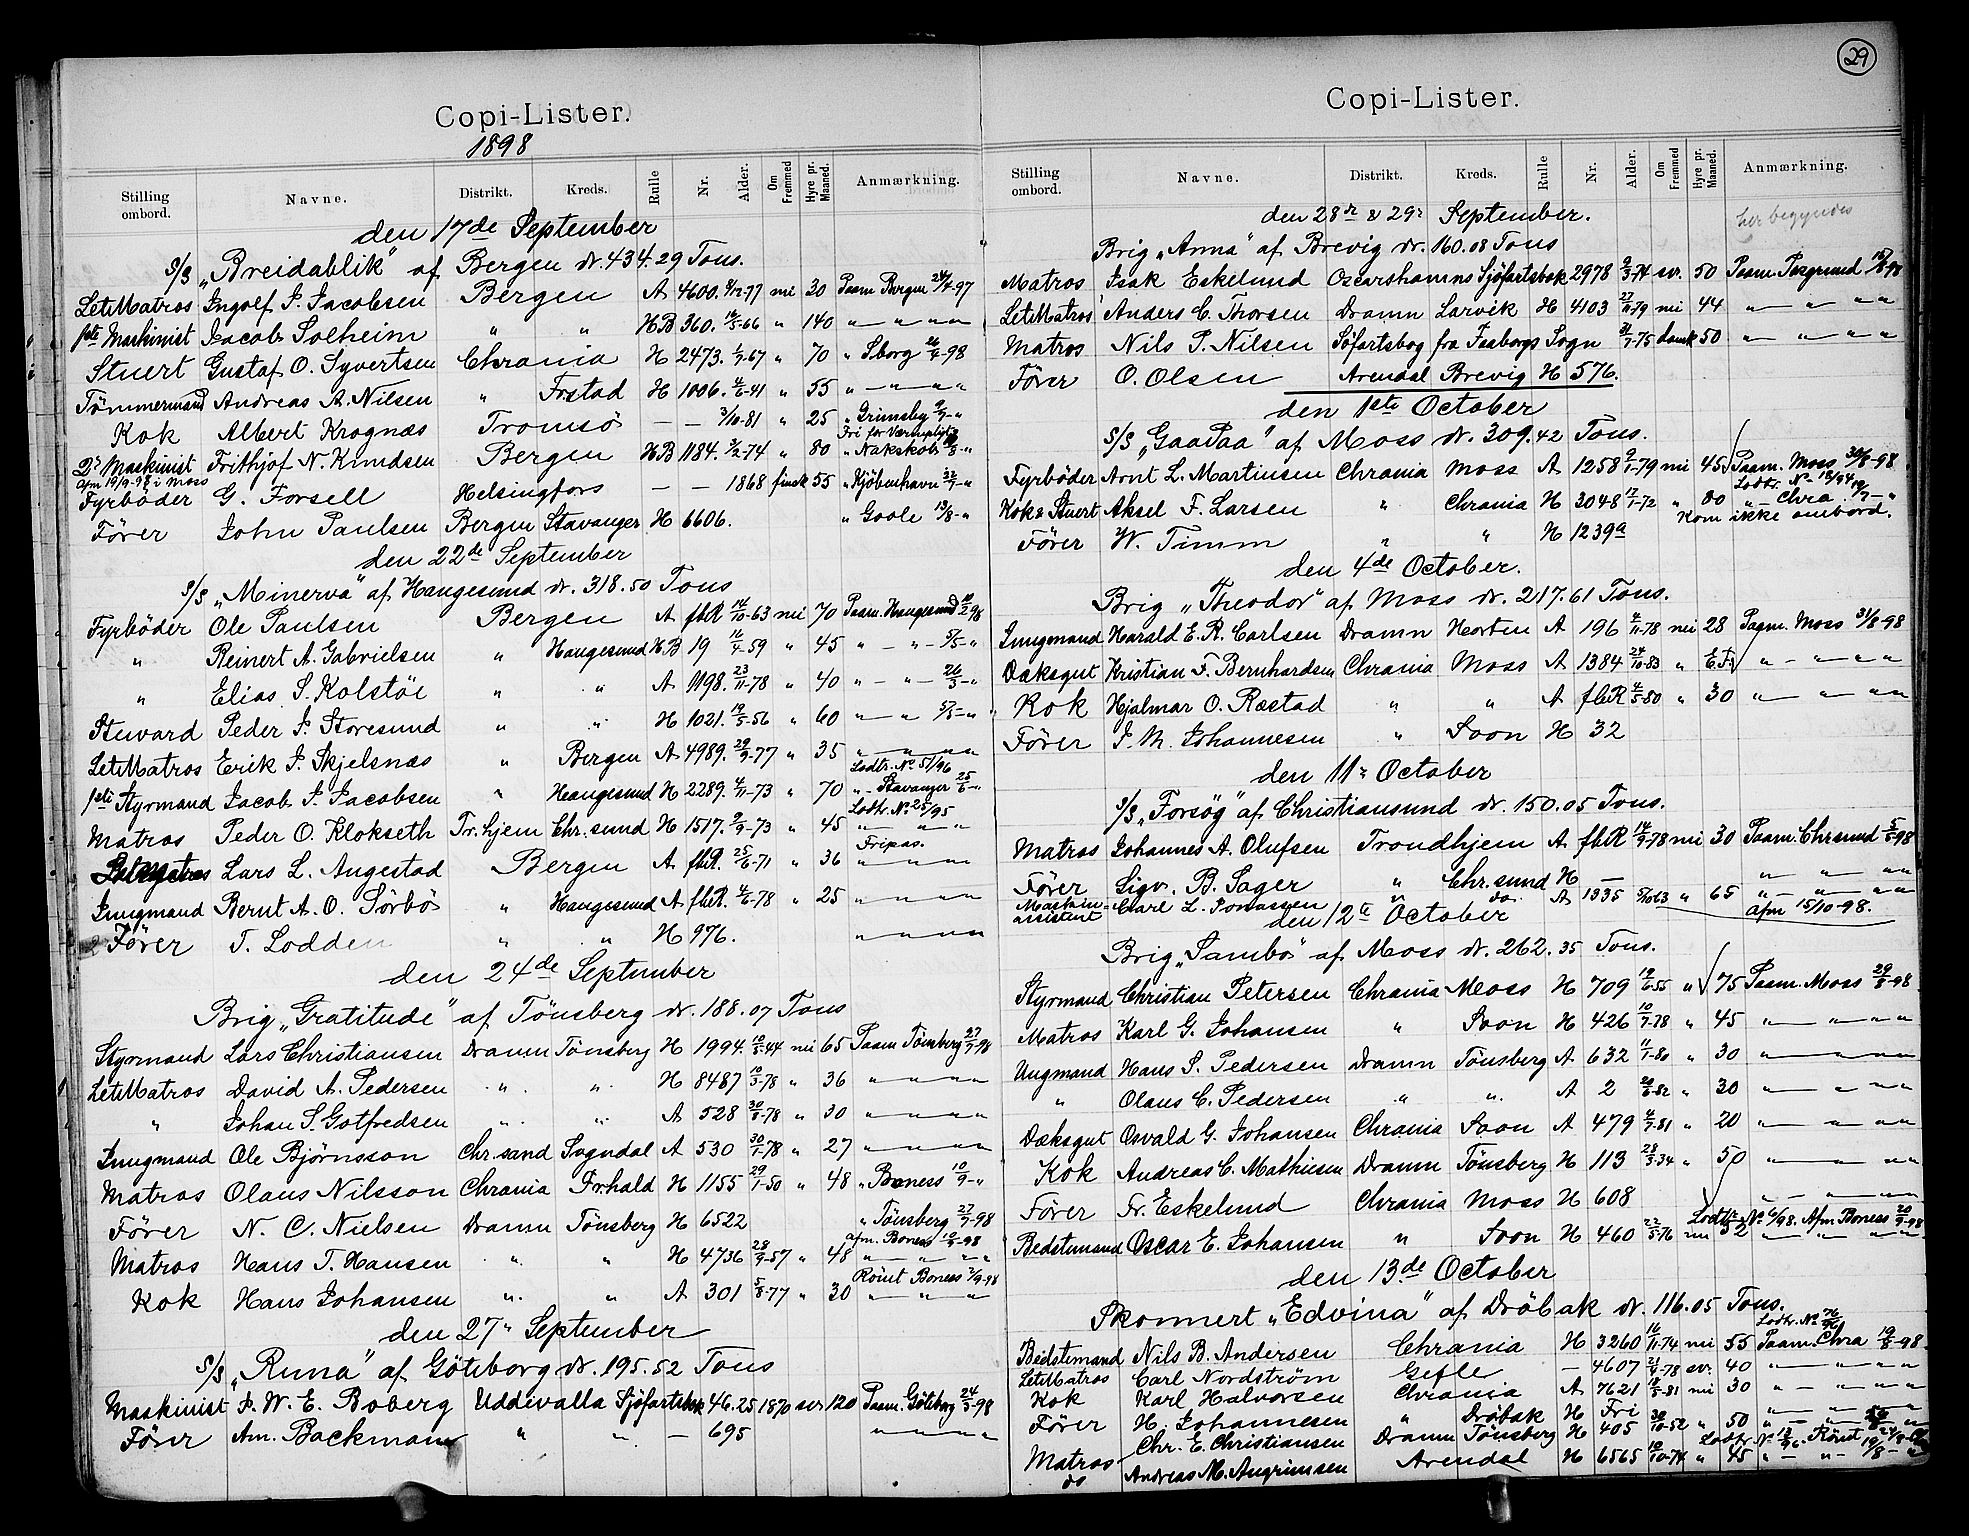 Copi-Lister.
1898
Stilling ombord. Navne. Distrikt. Kreds. Rulle Nr. Alder. Om Fremmed Hyre pr. Maaned. Anmærkning.
den 17de September
S/S „Breidablik" af Bergen dr. 434.29 Tons.
LetMatros Ingolf J. Jacobsen Bergen A 4600. 9/12-77 nei 30 Paam. Bergen 24/4-97
1ste Maskinist Jacob Solheim " " HB 360. 16/5-66 " 140 " — " " "
Stuert Gustaf O. Syvertsen Chrania H 2473. 1/9-67 " 70 " Sborg 26/4-98
Tømmermand Andreas A. Nilsen " Frstad H 1006. 4/6-41 " 55 " — " " "
Kok Albert Krognæs Tromsö — — 3/10-81 " 25 " Grimsby 9/9-"
Fri for Værnepligt
2n Maskinist Frithjof N. Knudsen Bergen HB 1184. 3/12-74 " 80 " Nakskob /8-"
Afm 19/9-98 i Moss
Fyrböder G. Forsell Helsingfors — — 1868 finsk 55 " Kjöbenhavn 22/7-"
Förer John Paulsen Bergen Stavanger H 6606. " Goole 13/8-"
den 22de September
S/S „Minerva" af Haugesund dr. 318.50 Tons
Fyrböder Ole Paulsen Bergen A fblR 14/10-63 nei 70 Paam. Haugesund 10/2 98
" Reinert A. Gabrielsen " Haugesund HB 19 16/4-59 " 45 " — " — 5/5-"
" Elias S. Kolstöe " " A 1198. 23/11-78 " 40 " — " — 26/3-"
Steward Peder J. Storesund " " H 1021. 19/5-56 " 60 " — " 5/5-"
LetMatros Erik J. Skjelsnæs " Bergen A 4989. 29/9-77 " 35 " — " " "
Lodtr. No 51/96
1ste Styrmand Jacob J. Jacobsen " Haugesund H 2289. 4/11-73 " 70 " - Stavanger 25/6-"
Lodtr. No 25/95
Matros Peder O. Klokseth Tr.hjem Chr.sund H 1517. 9/9-73 " 45 " — " "
Fripas.
Lars L. Augestad Bergen A fblR. 25/6-71 " 36 " " " "
Jungmand Bernt A. O. Sörbö " Haugesund A fblR. 4/6-78 " 25 " " " "
Förer T. Lodden " " H 976. " " " "
den 24de September
Brig „Gratitude" af Tönsberg dr. 188.07 Tons
Styrmand Lars Christiansen Dramn Tönsberg H 1994. 10/5-44 nei 65 Paam Tönsberg 27/7-98
LetMatros David A. Pedersen " " H 8487 10/3-78 " 36 " " " "
" Johan S. Gotfredsen " " A 528 30/8-78 " 30 " " " "
Jungmand Ole Björnsson Chr.sand Sogndal A 530 30/1-78 " 27 " — " " "
Matros Olaus Nilsson Chrania Frhald H 1155 29/1-50 " 48 " Boness 10/9-"
Förer N. C. Nielsen Dramn Tönsberg H 6522 " Tönsberg 27/7-98
Afm. Boness 10/9-98
Matros Hans T. Hansen " " H 4736 28/9-57 " 48 " " " "
Römt Boness 2/9-98
Kok Hans Johansen " " A 301 5/8-77 " 30 " " "
den 27n September
S/S „Runa" af Göteborg dr. 195.52 Tons
Maskinist J. W. E. Boberg Uddevalla Sjöfartsbok 46.25 1870 sv 120 Paam. Göteborg 24/5-98
Förer Am. Backman " " — 695 " " " "
29
Copi-Lister.
Stilling ombord. Navne. Distrikt. Kreds. Rulle Nr. Alder. Om Fremmed Hyre pr. Maaned. Anmærkning.
den 28de & 29n September. her begyndes
Brig „Anna" af Brevig dr. 160.08 Tons
Matros Isak Eskelund Oscarshamns Sjöfartsbok 2978 9/3-74 sv. 50 Paam. Porsgrund 10/-98
LetMatros Anders C. Thorsen Dramn Larvik H 4103 27/11-79 nei 44 " — " " "
Matros Nils P. Nilsen Söfartsbog fra Faaborgs Sogn 31/7-75 dansk 50 " — " " "
Förer O. Olsen Arendal Brevig H 576.
den 1ste October
S/S „GaaPaa" af Moss dr. 309.42 Tons.
Fyrböder Arnt L. Martinsen Chrania Moss A 1258 9/1-79 nei 45 Paam. Moss 30/8-98
Lodtr. No 18/94
Kok & Stuert Aksel F. Larsen " Chrania H 3048 17/1-72 " 80 " Chra. 19/7-"
Kom ikke ombord.
Förer W. Timm " " H 1239a
den 4de October.
Brig „Theodor" af Moss dr. 217.61 Tons.
Jungmand Harald E. R. Carlsen Dramn Horten A 196 4/11-78 nei 28 Paam. Moss 31/8-98
Dæksgut Kristian F. Bernhardsen Chrania Moss A 1384 24/10-83 " " — " " "
Kok Hjalmar O. Ræstad " " A fblR 4/5-80 " 30 " — " " "
Förer J. M. Johannesen " Soon H 32
den 11n October
S/S „Forsög" af Christiansund dr. 150.05 Tons.
Matros Johannes A. Olufsen Trondhjem A fblR 14/9-78 nei 30 Paam. Chrsund 5/5-98
Förer Sigv. B. Sager " Chr.sund H — " — " " "
Maskinassistent Carl L. Jonassen " do. A 1335 5/10 63 " 65 " — " " "
den 12te October Afm 15/10-98.
Brig „Sambö" af Moss dr. 262.35 Tons.
Styrmand Christian Petersen Chrania Moss H 709 12/6-55 " 75 Paam. Moss 29/8-98
Matros Karl G. Johansen " Soon H 426 10/7-78 " 45 " — " " "
Ungmand Hans S. Pedersen Dramn Tönsberg A 632 11/1-80 " 30 " — " " "
" Olaus C. Pedersen " " A 2 20/6-82 " 30 " — " " "
Dæksgut Osvald G. Johansen Chrania Soon A 479 4/9-81 " 20 " — " " "
Kok Andreas C. Mathiesen Dramn Tönsberg H 113 28/3-34 " 50 " — " " "
Förer Fr. Eskelund Chrania Moss H 608 " — " " "
Lodtr. No 6/98. Afm. Boness 20/9-98
Bedstemand Oscar E. Johansen " Soon H 460 22/5-76 nei 52 " — " " "
den 13de October
Skonnert „Edvina" af Dröbak dr. 116.05 Tons.
Lodtr. No 76/96
Bedstemand Nils B. Andersen Chrania H 3260 16/11-74 nei 55 Paam. Chra 19/8-98
LetMatros Carl Nordström Gefle — 4607 21/4-78 sv. 40 " — " " "
Kok Karl Halvorsen Chrania A 7621 18/5-81 nei 30 " — " " "
Förer H. Johannesen " Dröbak H Fri " — " " "
Chr. E. Christiansen Dramn Tönsberg H 405 30/10-52 " 50 " — " "
Lodtr. No 13/96. Römt
Matros Andreas M. Angrimsen Arendal H 6565 10/10-74 " 45 " — " 19/8-"
do